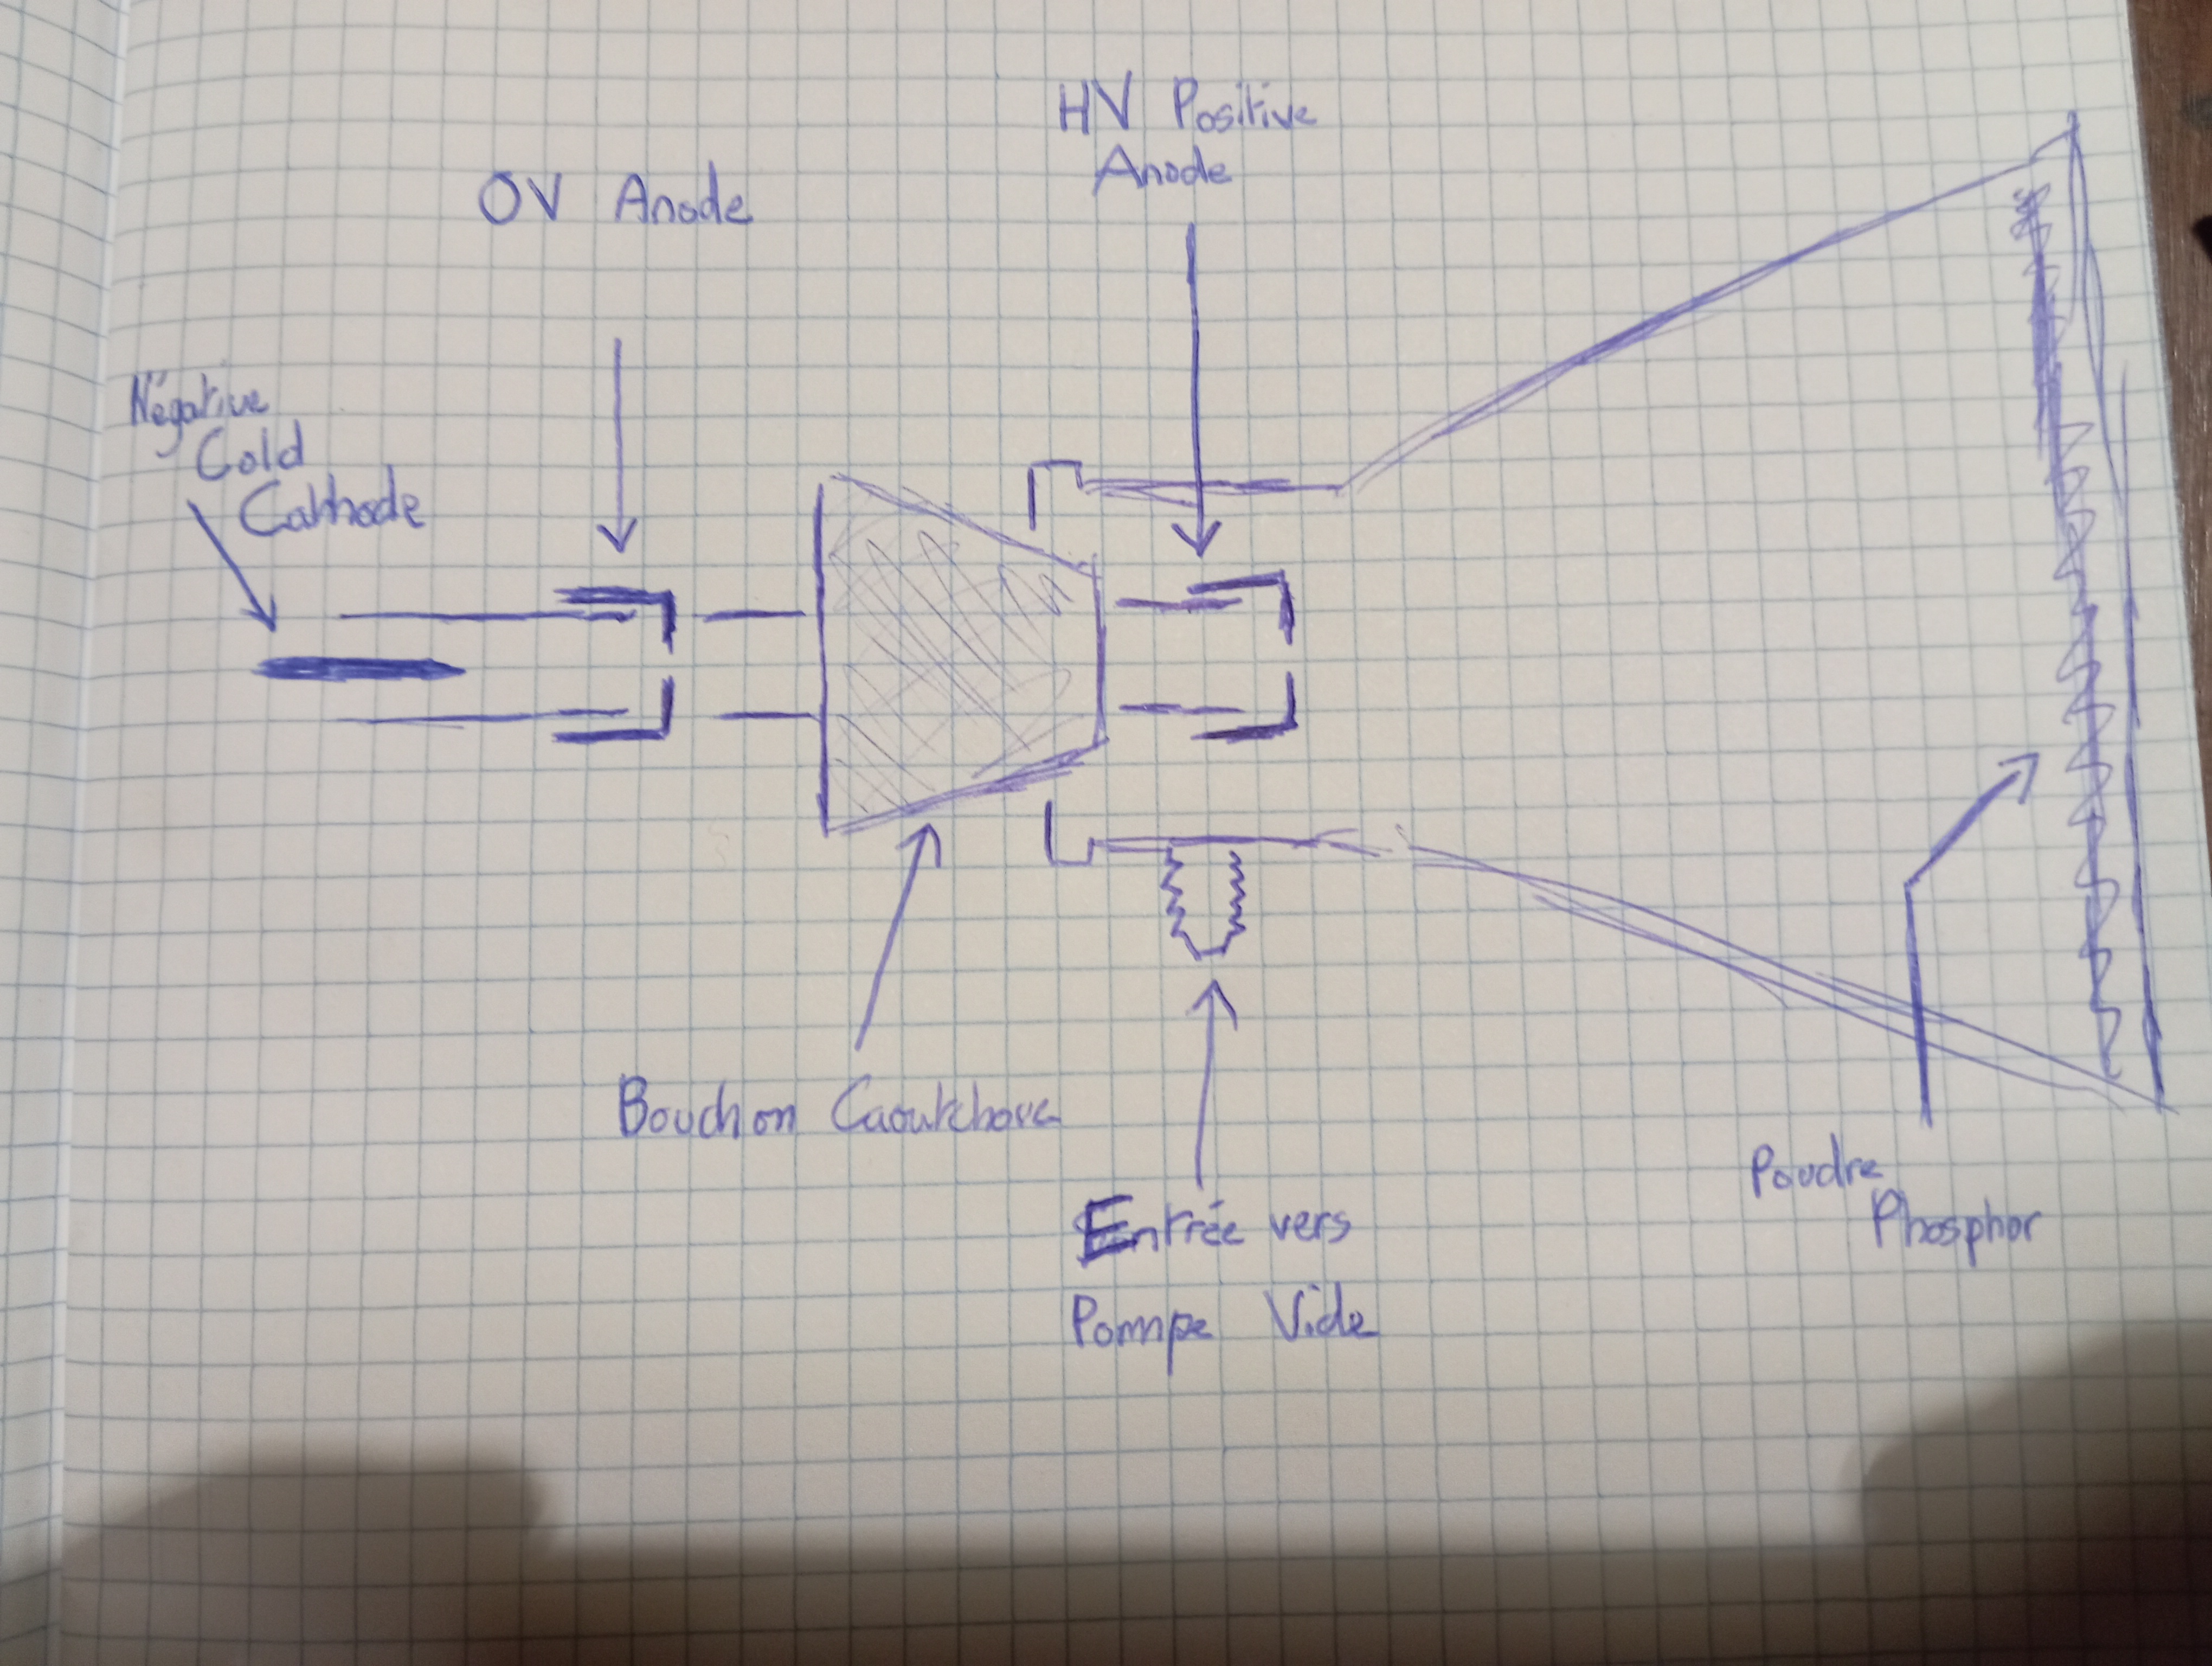 HV Positive
Anode
OV Anode
Négative
Cold
Cathode
Bouchon Caoutchouc
Entrée vers
Pompe Vide
Poudre
Phosphor